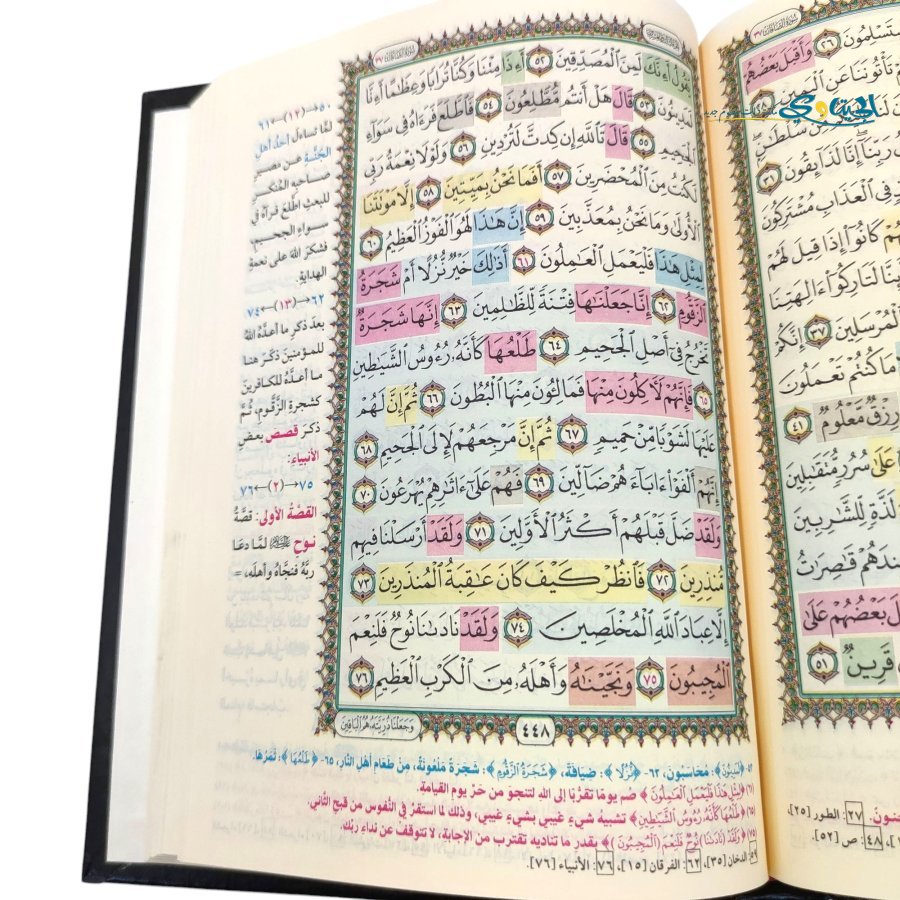 سورة الصافات ٣٧
يَقُولُ أَءِنَّكَ لَمِنَ ٱلْمُصَدِّقِينَ ٥٢ أَءِذَا مِتْنَا وَكُنَّا تُرَابًا وَعِظَـٰمًا أَءِنَّا
لَمَدِينُونَ ٥٣ قَالَ هَلْ أَنتُم مُّطَّلِعُونَ ٥٤ فَٱطَّلَعَ فَرَءَاهُ فِى سَوَآءِ
ٱلْجَحِيمِ ٥٥ قَالَ تَٱللَّهِ إِن كِدتَّ لَتُرْدِينِ ٥٦ وَلَوْلَا نِعْمَةُ رَبِّى
لَكُنتُ مِنَ ٱلْمُحْضَرِينَ ٥٧ أَفَمَا نَحْنُ بِمَيِّتِينَ ٥٨ إِلَّا مَوْتَتَنَا
ٱلْأُولَىٰ وَمَا نَحْنُ بِمُعَذَّبِينَ ٥٩ إِنَّ هَـٰذَا لَهُوَ ٱلْفَوْزُ ٱلْعَظِيمُ ٦٠
لِمِثْلِ هَـٰذَا فَلْيَعْمَلِ ٱلْعَـٰمِلُونَ ٦١ أَذَٰلِكَ خَيْرٌ نُّزُلًا أَمْ شَجَرَةُ
ٱلزَّقُّومِ ٦٢ إِنَّا جَعَلْنَـٰهَا فِتْنَةً لِّلظَّـٰلِمِينَ ٦٣ إِنَّهَا شَجَرَةٌ
تَخْرُجُ فِىٓ أَصْلِ ٱلْجَحِيمِ ٦٤ طَلْعُهَا كَأَنَّهُۥ رُءُوسُ ٱلشَّيَـٰطِينِ
٦٥ فَإِنَّهُمْ لَـَٔاكِلُونَ مِنْهَا فَمَالِـُٔونَ مِنْهَا ٱلْبُطُونَ ٦٦ ثُمَّ إِنَّ لَهُمْ
عَلَيْهَا لَشَوْبًا مِّنْ حَمِيمٍ ٦٧ ثُمَّ إِنَّ مَرْجِعَهُمْ لَإِلَى ٱلْجَحِيمِ ٦٨
إِنَّهُمْ أَلْفَوْا۟ ءَابَآءَهُمْ ضَآلِّينَ ٦٩ فَهُمْ عَلَىٰٓ ءَاثَـٰرِهِمْ يُهْرَعُونَ ٧٠
وَلَقَدْ ضَلَّ قَبْلَهُمْ أَكْثَرُ ٱلْأَوَّلِينَ ٧١ وَلَقَدْ أَرْسَلْنَا فِيهِم
مُّنذِرِينَ ٧٢ فَٱنظُرْ كَيْفَ كَانَ عَـٰقِبَةُ ٱلْمُنذَرِينَ ٧٣
إِلَّا عِبَادَ ٱللَّهِ ٱلْمُخْلَصِينَ ٧٤ وَلَقَدْ نَادَىٰنَا نُوحٌ فَلَنِعْمَ
ٱلْمُجِيبُونَ ٧٥ وَنَجَّيْنَـٰهُ وَأَهْلَهُۥ مِنَ ٱلْكَرْبِ ٱلْعَظِيمِ ٧٦
وَجَعَلْنَا ذُرِّيَّتَهُۥ هُمُ ٱلْبَاقِينَ
٤٤٨
٥٠→(١٢)←٦١
لمَّا تساءلَ أحدُ أهلِ
الجنَّةِ عن مصيرِ
صاحبِه المُنكِرِ
للبعثِ اطَّلعَ فرآهُ في
سواءِ الجحيمِ،
فشكرَ اللهَ على نعمةِ
الهدايةِ.
٦٢→(١٣)←٧٤
بعدَ ذكرِ ما أعدَّهُ اللهُ
للمؤمنينَ ذكرَ هنا
ما أعدَّهُ للكافرينَ
كشجرةِ الزَّقُّومِ، ثُمَّ
ذكرَ قصصَ بعضِ
الأنبياءِ:
٧٥→(٢)←٧٦
القصَّةُ الأولى: قصَّةُ
نوحٍ لمَّا دعا
ربَّه فنجَّاهُ وأهلَه، =
٥٣- ﴿لَمَدِينُونَ﴾: مُحَاسَبُونَ، ٦٢- ﴿نُّزُلًا﴾: ضِيَافَةً، ﴿شَجَرَةُ الزَّقُّومِ﴾: شَجَرَةٌ مَلْعُونَةٌ، مِنْ طَعَامِ أَهْلِ النَّارِ، ٦٥- ﴿طَلْعُهَا﴾: ثَمَرُهَا.
(٦١) ﴿لِمِثْلِ هَٰذَا فَلْيَعْمَلِ الْعَامِلُونَ﴾ صُم يومًا تقرُّبًا إلى اللهِ لتنجوَ من حَرِّ يومِ القيامةِ.
(٦٥) ﴿طَلْعُهَا كَأَنَّهُ رُءُوسُ الشَّيَاطِينِ﴾ تشبيه شيءٍ غيبيٍّ بشيءٍ غيبيٍّ، وذلك لما استقرَّ في النُّفوسِ من قبحِ الثَّاني.
(٧٥) ﴿وَلَقَدْ نَادَانَا نُوحٌ فَلَنِعْمَ الْمُجِيبُونَ﴾ بقدرِ ما تناديه تقتربُ من الإجابةِ، لا تتوقفْ عن نداءِ ربِّك.
الدخان [٣٥]، ٦٢: الفرقان [١٥]، ٧٦: الأنبياء [٧٦].
سورة الصافات ٣٧
٢٦ وَأَقْبَلَ بَعْضُهُمْ
تَأْتُونَنَا عَنِ ٱلْيَمِينِ
سُلْطَـٰنٍ
رَبِّنَآ إِنَّا لَذَآئِقُونَ
فِى ٱلْعَذَابِ مُشْتَرِكُونَ
كَانُوٓا۟ إِذَا قِيلَ لَهُمْ
لَتَارِكُوٓا۟ ءَالِهَتِنَا
ٱلْمُرْسَلِينَ ٣٧ إِنَّكُمْ
مَا كُنتُمْ تَعْمَلُونَ
رِزْقٌ مَّعْلُومٌ ٤١
عَلَىٰ سُرُرٍ مُّتَقَـٰبِلِينَ
لَذَّةٍ لِّلشَّـٰرِبِينَ
قَـٰصِرَٰتُ
بَعْضُهُمْ عَلَىٰ
قَرِينٌ ٥١
٢٧: الطور [٢٥]،
٤٨: ص [٥٢].